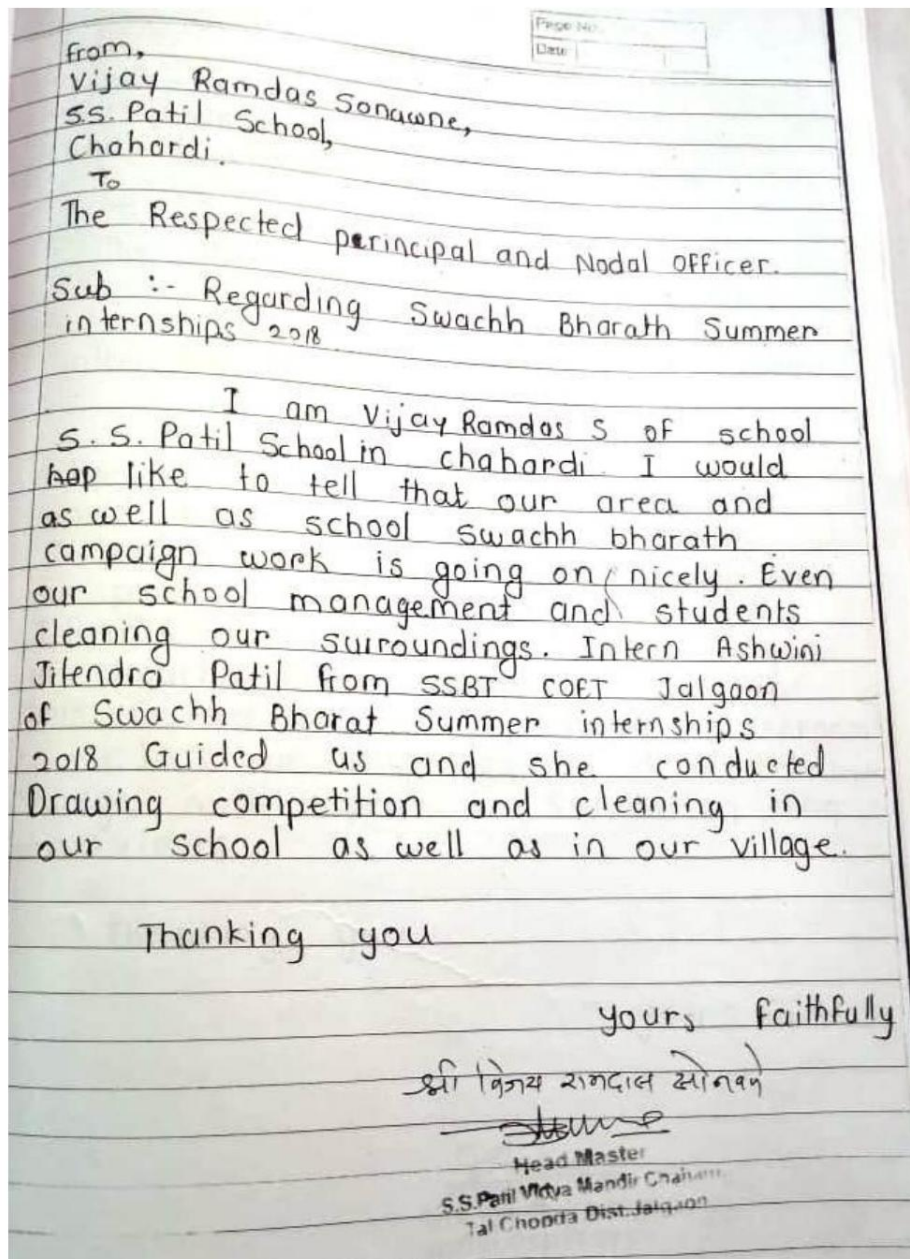 Page No.
Date
From,
Vijay Ramdas Sonawne,
S.S. Patil School,
Chahardi.
To
The Respected perincipal and Nodal officer.
Sub :- Regarding Swachh Bharath Summer
internships 2018
I am Vijay Ramdas S of school
S. S. Patil School in chahardi. I would
like to tell that our area and
as well as school swachh bharath
campaign work is going on nicely. Even
our school management and students
cleaning our surroundings. Intern Ashwini
Jitendra Patil from SSBT COET Jalgaon
of Swachh Bharat Summer internships
2018 Guided us and she conducted
Drawing competition and cleaning in
our school as well as in our village.
Thanking you
yours faithfully
श्री विजय रामदास सोनवणे
Head Master
S.S.Patil Vidya Mandir
Tal Chopda Dist.Jalgaon